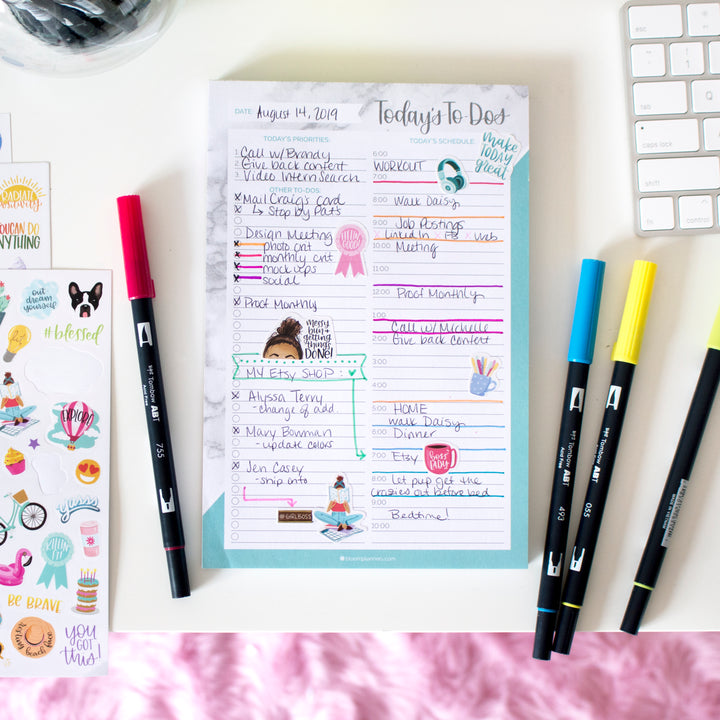 DATE: August 14, 2019
Today's To Dos
make TODAY great
TODAY'S PRIORITIES:
1. Call w/ Brandy
2. Give back content
3. Video Intern Search
OTHER TO-DOS:
x Mail Craig's card
x ↳ Stop by Pat's
Design Meeting
x photo cnt
x monthly cnt
x mock ups
x social
KILLIN' GOOD!
x Proof Monthly
messy bun + getting things DONE!
MY Etsy SHOP:
x Alyssa Terry
- change of add.
x Mary Bowman
- update colors
x Jen Casey
- ship info
#GIRLBOSS
TODAY'S SCHEDULE:
6:00
WORKOUT
7:00
8:00 Walk Daisy
9:00 Job Postings
LinkedIn FB web
10:00 Meeting
11:00
12:00 Proof Monthly
1:00
Call w/ Michelle
2:00 Give back content
3:00
4:00
5:00 HOME
walk Daisy
6:00 Dinner
7:00 Etsy
BOSS LADY
8:00 let pup get the
crashies out before bed
9:00
Bedtime!
10:00
bloomplanners.com
RADIATE
YOU CAN DO ANYTHING
out dream yourself
#blessed
lit
EXPLORE!
yasss
KILLIN' IT!
BE BRAVE
resting beach face
YOU GOT this!
755
Tombow ABT
493
Tombow ABT
055
Tombow ABT
esc
tab
caps lock
shift
control